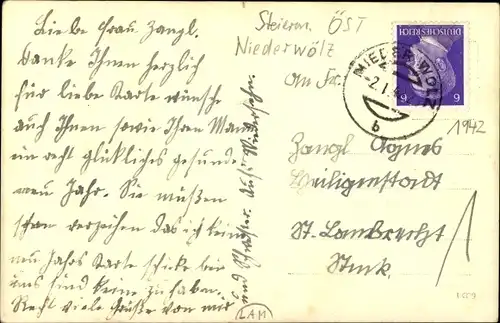 Liebe Frau Zangl.
Danke Ihnen herzlich
für liebe Karte wünsche
auch Ihnen sowie Ihren Mann
ein recht glückliches gesundes
neu Jahr. Sie müßen
schon verzeihen das ich keine
neu Jahrs Karte schicke bei
uns sind keine zu haben.
Recht viele Grüße von mir
und Schwester
LAM
Steierm. ÖST
Niederwölz
An Fr.
DEUTSCHES REICH
6 6
NIEDERWÖLZ
-2.1.4
b
1942
Zangl Agnes
Heiligenstadt
St. Lambrecht
Stmk.